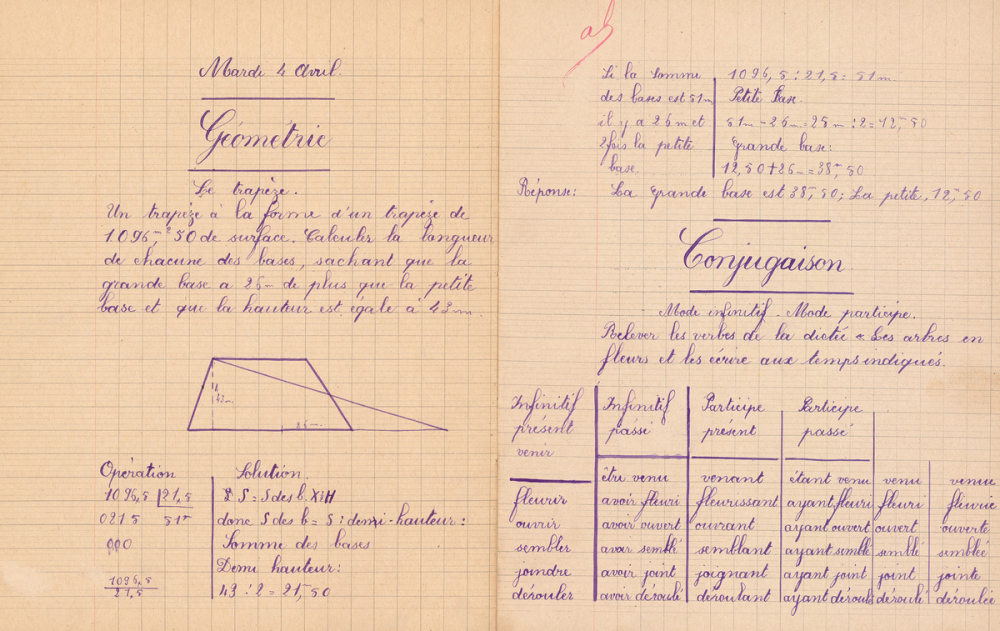 Mardi 4 Avril.
Géométrie
Le trapèze.
Un trapèze à la forme d'un trapèze de
1096,50 de surface. Calculer la longueur
de chacune des bases, sachant que la
grande base a 26m de plus que la petite
base et que la hauteur est égale à 43m.
26m
Opération
Solution.
1096,5 | 21,5
S = S des b. X H
0215 51m
donc S des b = S : demi-hauteur :
000
Somme des bases
Demi hauteur:
1096,5
21,5
43 : 2 = 21,50
ab
Si la somme
1096,5 : 21,5 = 51m
des bases est 51m
Petite Base.
il y a 26 m et
51m - 26m = 25m : 2 = 12,50
2 fois la petite
Grande base:
base.
12,50 + 26m = 38,50
Réponse: La grande base est 38,50; La petite, 12,50
Conjugaison
Mode infinitif - Mode participe.
Relever les verbes de la dictée « Les arbres en
fleurs et les écrire aux temps indiqués.
Infinitif Infinitif Participe Participe
présent passé présent passé
venir
être venu venant étant venu venu venue
fleurir avoir fleuri fleurissant ayant fleuri fleuri fleurie
ouvrir avoir ouvert ouvrant ayant ouvert ouvert ouverte
sembler avoir semblé semblant ayant semblé semblé semblée
joindre avoir joint joignant ayant joint joint jointe
dérouler avoir déroulé déroulant ayant déroulé déroulé déroulée